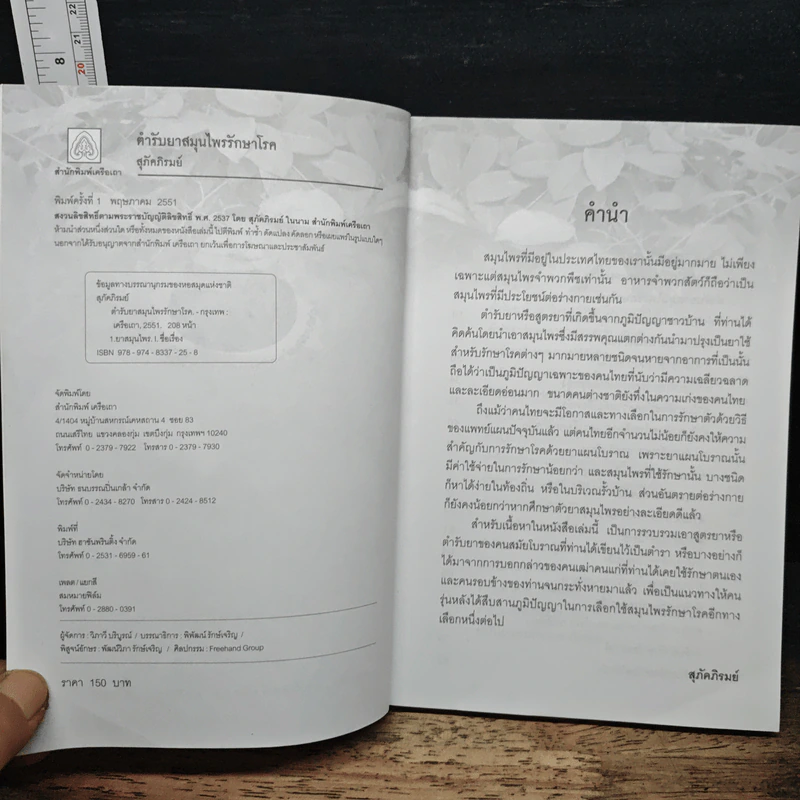 8
22
21
20
ตำรับยาสมุนไพรรักษาโรค
สุภัคภิรมย์
สำนักพิมพ์เครือเถา
พิมพ์ครั้งที่ 1 พฤษภาคม 2551
สงวนลิขสิทธิ์ตามพระราชบัญญัติลิขสิทธิ์ พ.ศ. 2537 โดย สุภัคภิรมย์ ในนาม สำนักพิมพ์เครือเถา
ห้ามนำส่วนหนึ่งส่วนใด หรือทั้งหมดของหนังสือเล่มนี้ ไปตีพิมพ์ ทำซ้ำ ดัดแปลง คัดลอก หรือเผยแพร่ในรูปแบบใดๆ
นอกจากได้รับอนุญาตจากสำนักพิมพ์ เครือเถา ยกเว้นเพื่อการโฆษณาและประชาสัมพันธ์
ข้อมูลทางบรรณานุกรมของหอสมุดแห่งชาติ
สุภัคภิรมย์
ตำรับยาสมุนไพรรักษาโรค. - กรุงเทพ :
เครือเถา, 2551. 208 หน้า
1.ยาสมุนไพร. I. ชื่อเรื่อง
ISBN 978 - 974 - 8337 - 25 - 8
จัดพิมพ์โดย
สำนักพิมพ์ เครือเถา
4/1404 หมู่บ้านสหกรณ์เคหสถาน 4 ซอย 83
ถนนเสรีไทย แขวงคลองกุ่ม เขตบึงกุ่ม กรุงเทพฯ 10240
โทรศัพท์ 0 - 2379 - 7922 โทรสาร 0 - 2379 - 7930
จัดจำหน่ายโดย
บริษัท ธนบรรณปิ่นเกล้า จำกัด
โทรศัพท์ 0 - 2434 - 8270 โทรสาร 0 - 2424 - 8512
พิมพ์ที่
บริษัท ฮาซันพริ้นติ้ง จำกัด
โทรศัพท์ 0 - 2531 - 6959 - 61
เพลต / แยกสี
สมหมายฟิล์ม
โทรศัพท์ 0 - 2880 - 0391
ผู้จัดการ : วิภาวี บริบูรณ์ / บรรณาธิการ : พิพัฒน์ รักษ์เจริญ /
พิสูจน์อักษร : พัฒน์วิภา รักษ์เจริญ / ศิลปกรรม : Freehand Group
ราคา 150 บาท
คำนำ
สมุนไพรที่มีอยู่ในประเทศไทยของเรานั้นมีอยู่มากมาย ไม่เพียง
เฉพาะแต่สมุนไพรจำพวกพืชเท่านั้น อาหารจำพวกสัตว์ก็ถือว่าเป็น
สมุนไพรที่มีประโยชน์ต่อร่างกายเช่นกัน
ตำรับยาหรือสูตรยาที่เกิดขึ้นจากภูมิปัญญาชาวบ้าน ที่ท่านได้
คิดค้นโดยนำเอาสมุนไพรซึ่งมีสรรพคุณแตกต่างกันนำมาปรุงเป็นยาใช้
สำหรับรักษาโรคต่างๆ มากมายหลายชนิดจนหายจากอาการที่เป็นนั้น
ถือได้ว่าเป็นภูมิปัญญาเฉพาะของคนไทยที่นับว่ามีความเฉลียวฉลาด
และละเอียดอ่อนมาก ขนาดคนต่างชาติยังทึ่งในความเก่งของคนไทย
ถึงแม้ว่าคนไทยจะมีโอกาสและทางเลือกในการรักษาตัวด้วยวิธี
ของแพทย์แผนปัจจุบันแล้ว แต่คนไทยอีกจำนวนไม่น้อยก็ยังคงให้ความ
สำคัญกับการรักษาโรคด้วยยาแผนโบราณ เพราะยาแผนโบราณนั้น
มีค่าใช้จ่ายในการรักษาน้อยกว่า และสมุนไพรที่ใช้รักษานั้น บางชนิด
ก็หาได้ง่ายในท้องถิ่น หรือในบริเวณรั้วบ้าน ส่วนอันตรายต่อร่างกาย
ก็ยังคงน้อยกว่าหากศึกษาตัวยาสมุนไพรอย่างละเอียดดีแล้ว
สำหรับเนื้อหาในหนังสือเล่มนี้ เป็นการรวบรวมเอาสูตรยาหรือ
ตำรับยาของคนสมัยโบราณที่ท่านได้เขียนไว้เป็นตำรา หรือบางอย่างก็
ได้มาจากการบอกกล่าวของคนเฒ่าคนแก่ที่ท่านได้เคยใช้รักษาตนเอง
และคนรอบข้างของท่านจนกระทั่งหายมาแล้ว เพื่อเป็นแนวทางให้คน
รุ่นหลังได้สืบสานภูมิปัญญาในการเลือกใช้สมุนไพรรักษาโรคอีกทาง
เลือกหนึ่งต่อไป
สุภัคภิรมย์